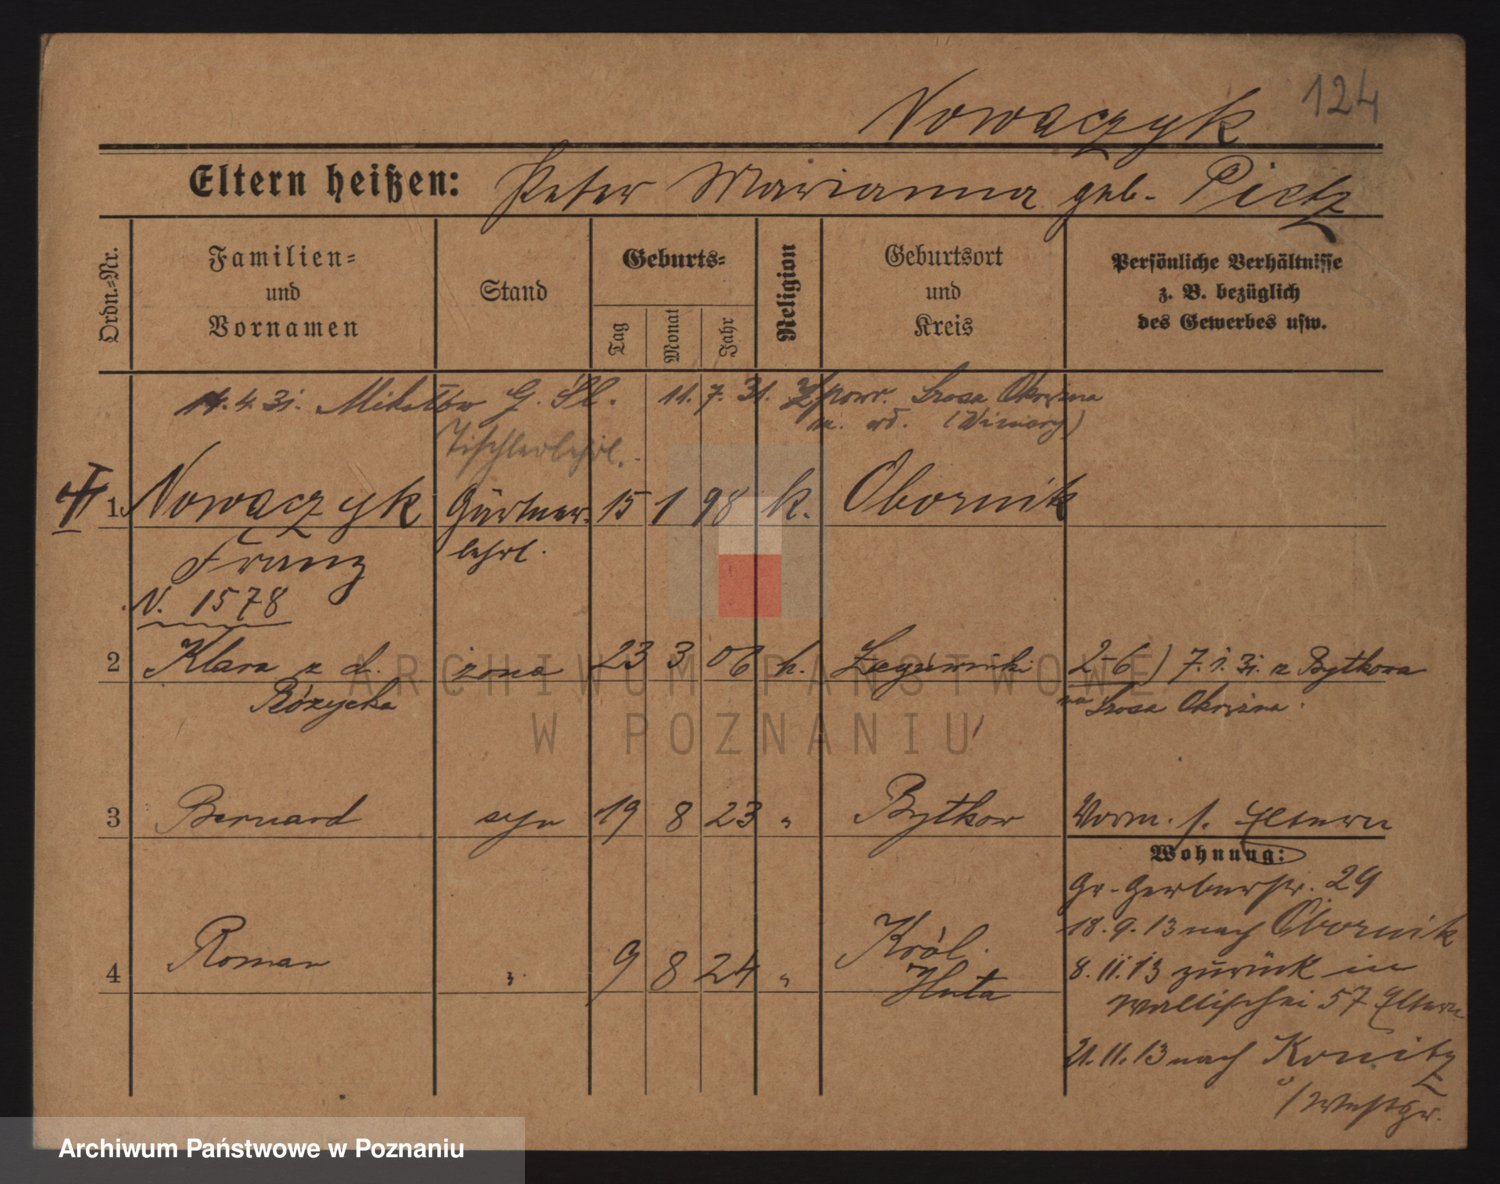 Nowaczyk 124
Eltern heißen: Peter Marianna geb. Pietz
Ordn.-Nr.
Familien-
und
Vornamen
Stand
Geburts-
Tag
Monat
Jahr
Religion
Geburtsort
und
Kreis
Persönliche Verhältnisse
z. B. bezüglich
des Gewerbes usw.
4.31. Mikołów G. Śl. 11. 7. 31. powr. Szosa Okrężna
(Winiary)
Tischlerlehrl.
1 Nowaczyk Gärtner- 15 1 98 k. Obornik
Franz lehrl.
V. 1578
2 Klara z d. żona 23 3 06 k. 2-6) 7.1.31. z Bytkowa
Różycka na Szosa Okrężna.
3 Bernard syn 19 8 23 " Bytkow Vorm. s. Eltern
Wohnung:
Gr. Gerberstr. 29
18.9.13 nach Obornik
4 Roman " 9 8 24 " Król. Huta
8.11.13 zurück in
Wallischei 57 Eltern
21.11.13 nach Konitz
/Westpr.
ARCHIWUM PAŃSTWOWE
W POZNANIU
Archiwum Państwowe w Poznaniu